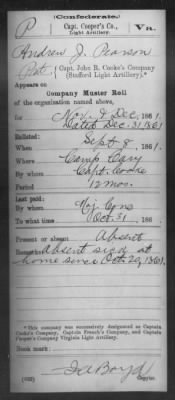 (Confederate.)
P Capt. Cooper's Co., Vn.
Light Artillery.
Andrew J. Pearson
Pvt., Capt. John R. Cooke's Company
(Stafford Light Artillery).*
Appears on
Company Muster Roll
of the organization named above,
for Nov. & Dec., 1861.
Dated Dec. 31, 1861
Enlisted:
When Sept 8, 1861.
Where Camp Clary
By whom Capt. Cooke
Period 12 mos.
Last paid:
By whom Maj. Cone
To what time Oct. 31, 1861.
Present or absent Absent
Remarks: Absent sick at
home since Oct. 29, 1861.
* This company was successively designated as Captain
Cooke's Company, Captain French's Company, and Captain
Cooper's Company Virginia Light Artillery.
Book mark:
(642) Boyd
Copyist.